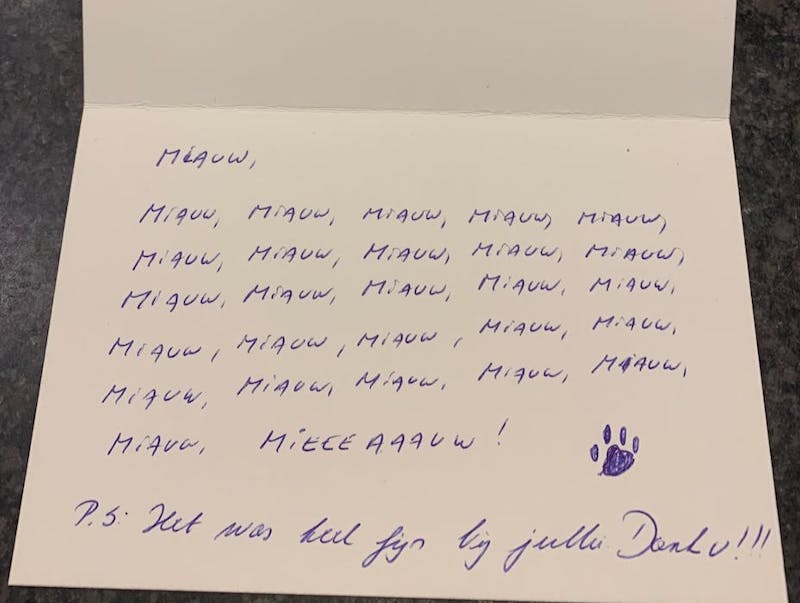 MIAUW,
MIAUW, MIAUW, MIAUW, MIAUW, MIAUW,
MIAUW, MIAUW, MIAUW, MIAUW, MIAUW,
MIAUW, MIAUW, MIAUW, MIAUW, MIAUW,
MIAUW, MIAUW, MIAUW, MIAUW, MIAUW,
MIAUW, MIAUW, MIAUW, MIAUW, MIAUW,
MIAUW, MIEEEAAAUW!
P.S: Het was heel fijn bij jullie Dank u!!!